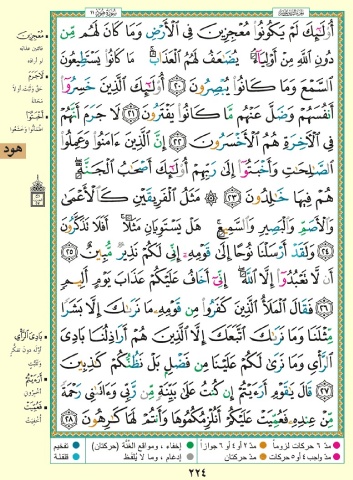 أُو۟لَـٰٓئِكَ لَمْ يَكُونُوا۟ مُعْجِزِينَ فِى ٱلْأَرْضِ وَمَا كَانَ لَهُم مِّن
دُونِ ٱللَّهِ مِنْ أَوْلِيَآءَ ۘ يُضَـٰعَفُ لَهُمُ ٱلْعَذَابُ ۚ مَا كَانُوا۟ يَسْتَطِيعُونَ
ٱلسَّمْعَ وَمَا كَانُوا۟ يُبْصِرُونَ ﴿٢٠﴾ أُو۟لَـٰٓئِكَ ٱلَّذِينَ خَسِرُوٓا۟
أَنفُسَهُمْ وَضَلَّ عَنْهُم مَّا كَانُوا۟ يَفْتَرُونَ ﴿٢١﴾ لَا جَرَمَ أَنَّهُمْ
فِى ٱلْـَٔاخِرَةِ هُمُ ٱلْأَخْسَرُونَ ﴿٢٢﴾ إِنَّ ٱلَّذِينَ ءَامَنُوا۟ وَعَمِلُوا۟
ٱلصَّـٰلِحَـٰتِ وَأَخْبَتُوٓا۟ إِلَىٰ رَبِّهِمْ أُو۟لَـٰٓئِكَ أَصْحَـٰبُ ٱلْجَنَّةِ ۖ
هُمْ فِيهَا خَـٰلِدُونَ ﴿٢٣﴾ ۞ مَثَلُ ٱلْفَرِيقَيْنِ كَٱلْأَعْمَىٰ
وَٱلْأَصَمِّ وَٱلْبَصِيرِ وَٱلسَّمِيعِ ۚ هَلْ يَسْتَوِيَانِ مَثَلًا ۚ أَفَلَا تَذَكَّرُونَ
﴿٢٤﴾ وَلَقَدْ أَرْسَلْنَا نُوحًا إِلَىٰ قَوْمِهِۦٓ إِنِّى لَكُمْ نَذِيرٌ مُّبِينٌ ﴿٢٥﴾
أَن لَّا تَعْبُدُوٓا۟ إِلَّا ٱللَّهَ ۖ إِنِّىٓ أَخَافُ عَلَيْكُمْ عَذَابَ يَوْمٍ أَلِيمٍ
﴿٢٦﴾ فَقَالَ ٱلْمَلَأُ ٱلَّذِينَ كَفَرُوا۟ مِن قَوْمِهِۦ مَا نَرَىٰكَ إِلَّا بَشَرًا
مِّثْلَنَا وَمَا نَرَىٰكَ ٱتَّبَعَكَ إِلَّا ٱلَّذِينَ هُمْ أَرَاذِلُنَا بَادِىَ
ٱلرَّأْىِ وَمَا نَرَىٰ لَكُمْ عَلَيْنَا مِن فَضْلٍۭ بَلْ نَظُنُّكُمْ كَـٰذِبِينَ
﴿٢٧﴾ قَالَ يَـٰقَوْمِ أَرَءَيْتُمْ إِن كُنتُ عَلَىٰ بَيِّنَةٍ مِّن رَّبِّى وَءَاتَىٰنِى رَحْمَةً
مِّنْ عِندِهِۦ فَعُمِّيَتْ عَلَيْكُمْ أَنُلْزِمُكُمُوهَا وَأَنتُمْ لَهَا كَـٰرِهُونَ ﴿٢٨﴾
مُعْجِزِينَ
لَاجَرَمَ
أَخْبَتُوا
هود
بَادِيَ الرَّأْيِ
أَرَءَيْتُمْ
أخبروني
فَعُمِّيَتْ
أُخفيت
مدّ ٦ حركات لزوماً
مدّ ٢ أو ٤ أو ٦ جوازاً
إخفاء، ومواقع الغُنَّة (حركتان)
تفخيم
مدّ واجب ٤ أو ٥ حركات
مدّ حركتان
إدغام، وما لا يُلفظ
قلقلة
٢٢٤